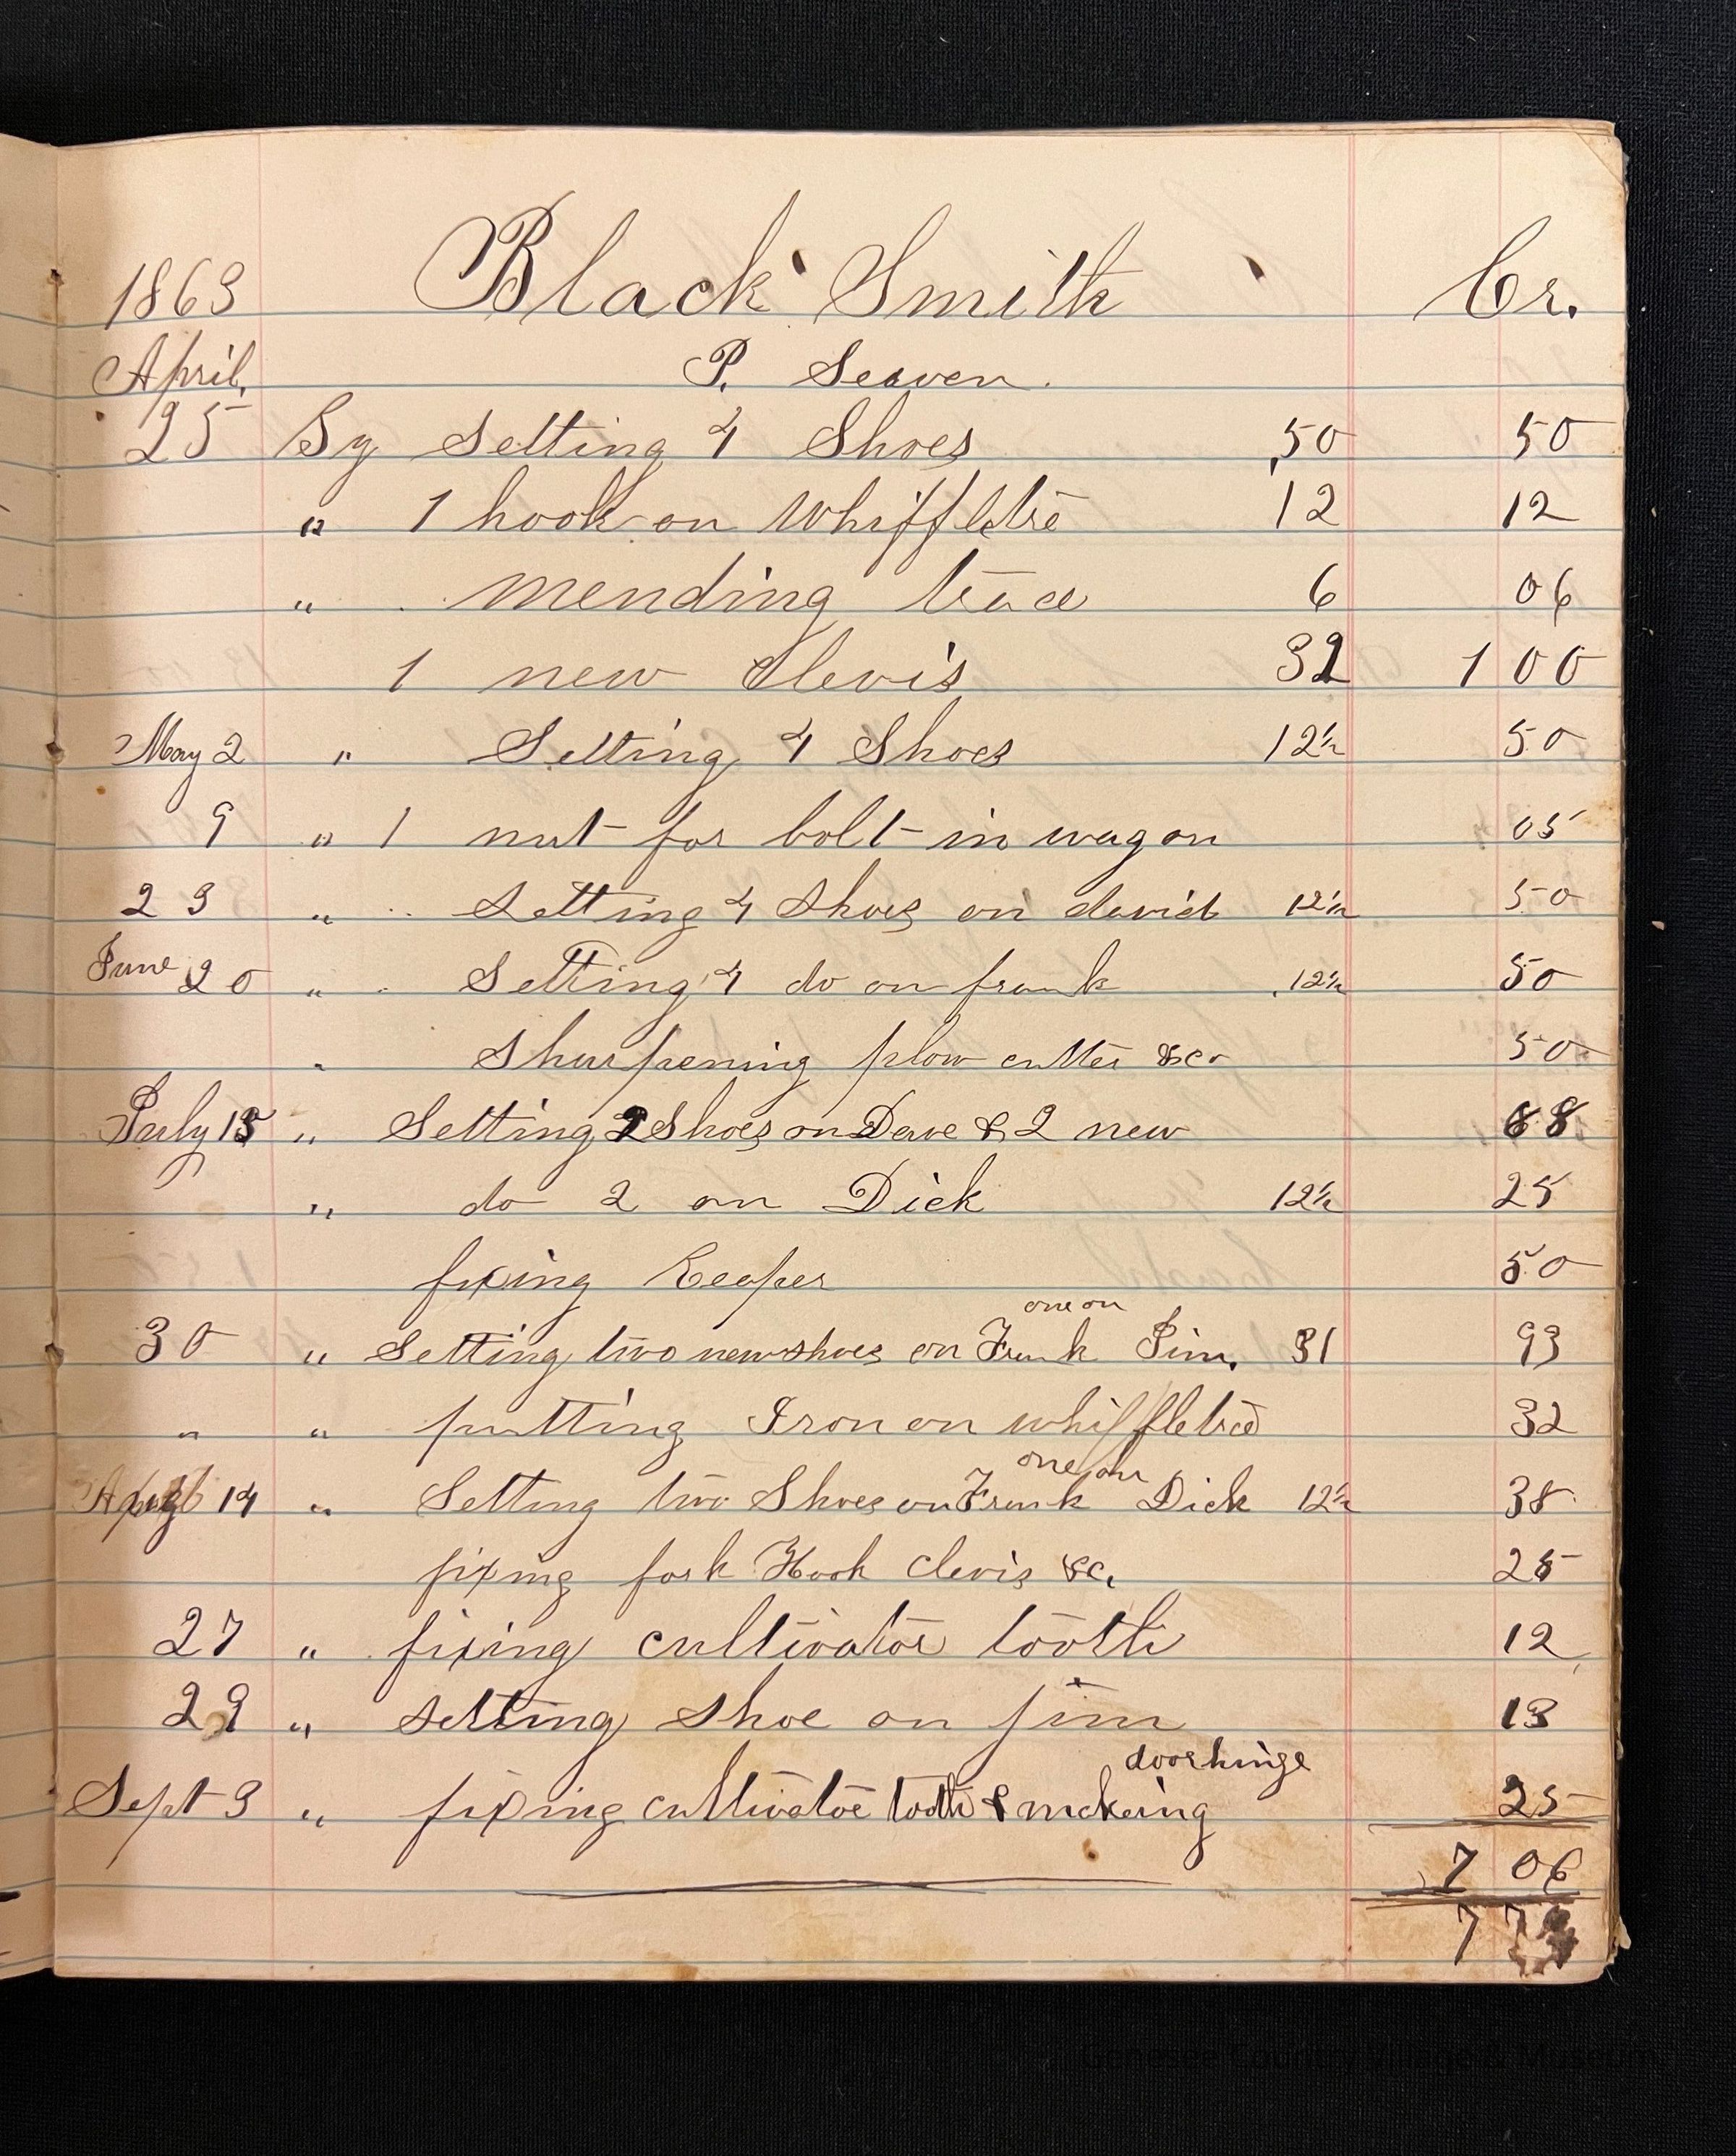 1863 Black Smith Cr.
April P. Seaven.
25 By Setting 4 Shoes ,50 50
" 1 hook on Whiffletre 12 12
" mending trace 6 06
1 new Clevis 32 1 00
May 2 " Setting 4 Shoes 12½ 50
9 " 1 nut for bolt in wagon 05
23 " Setting 4 Shoes on david 12½ 50
June 20 " Setting 4 do on frank .12½ 50
" Sharpening plow cutter &c 50
July 15 " Setting 2 Shoes on Dave & 2 new 88
" do 2 on Dick 12½ 25
fixing Reaper 50
one on
30 " Setting two new shoes on Frank Jim. 31 93
" " putting Iron on whiffletree 32
one on
14 " Setting two Shoes on Frank Dick 12½ 38
fixing fork Hook Clevis &c. 25
27 " fixing cultivator tooth 12
29 " setting shoe on jim 13
door hinge
Sept 3 " fixing cultivator tooth & makeing 25
7 06
7 7
Genesee Country Village & Museum